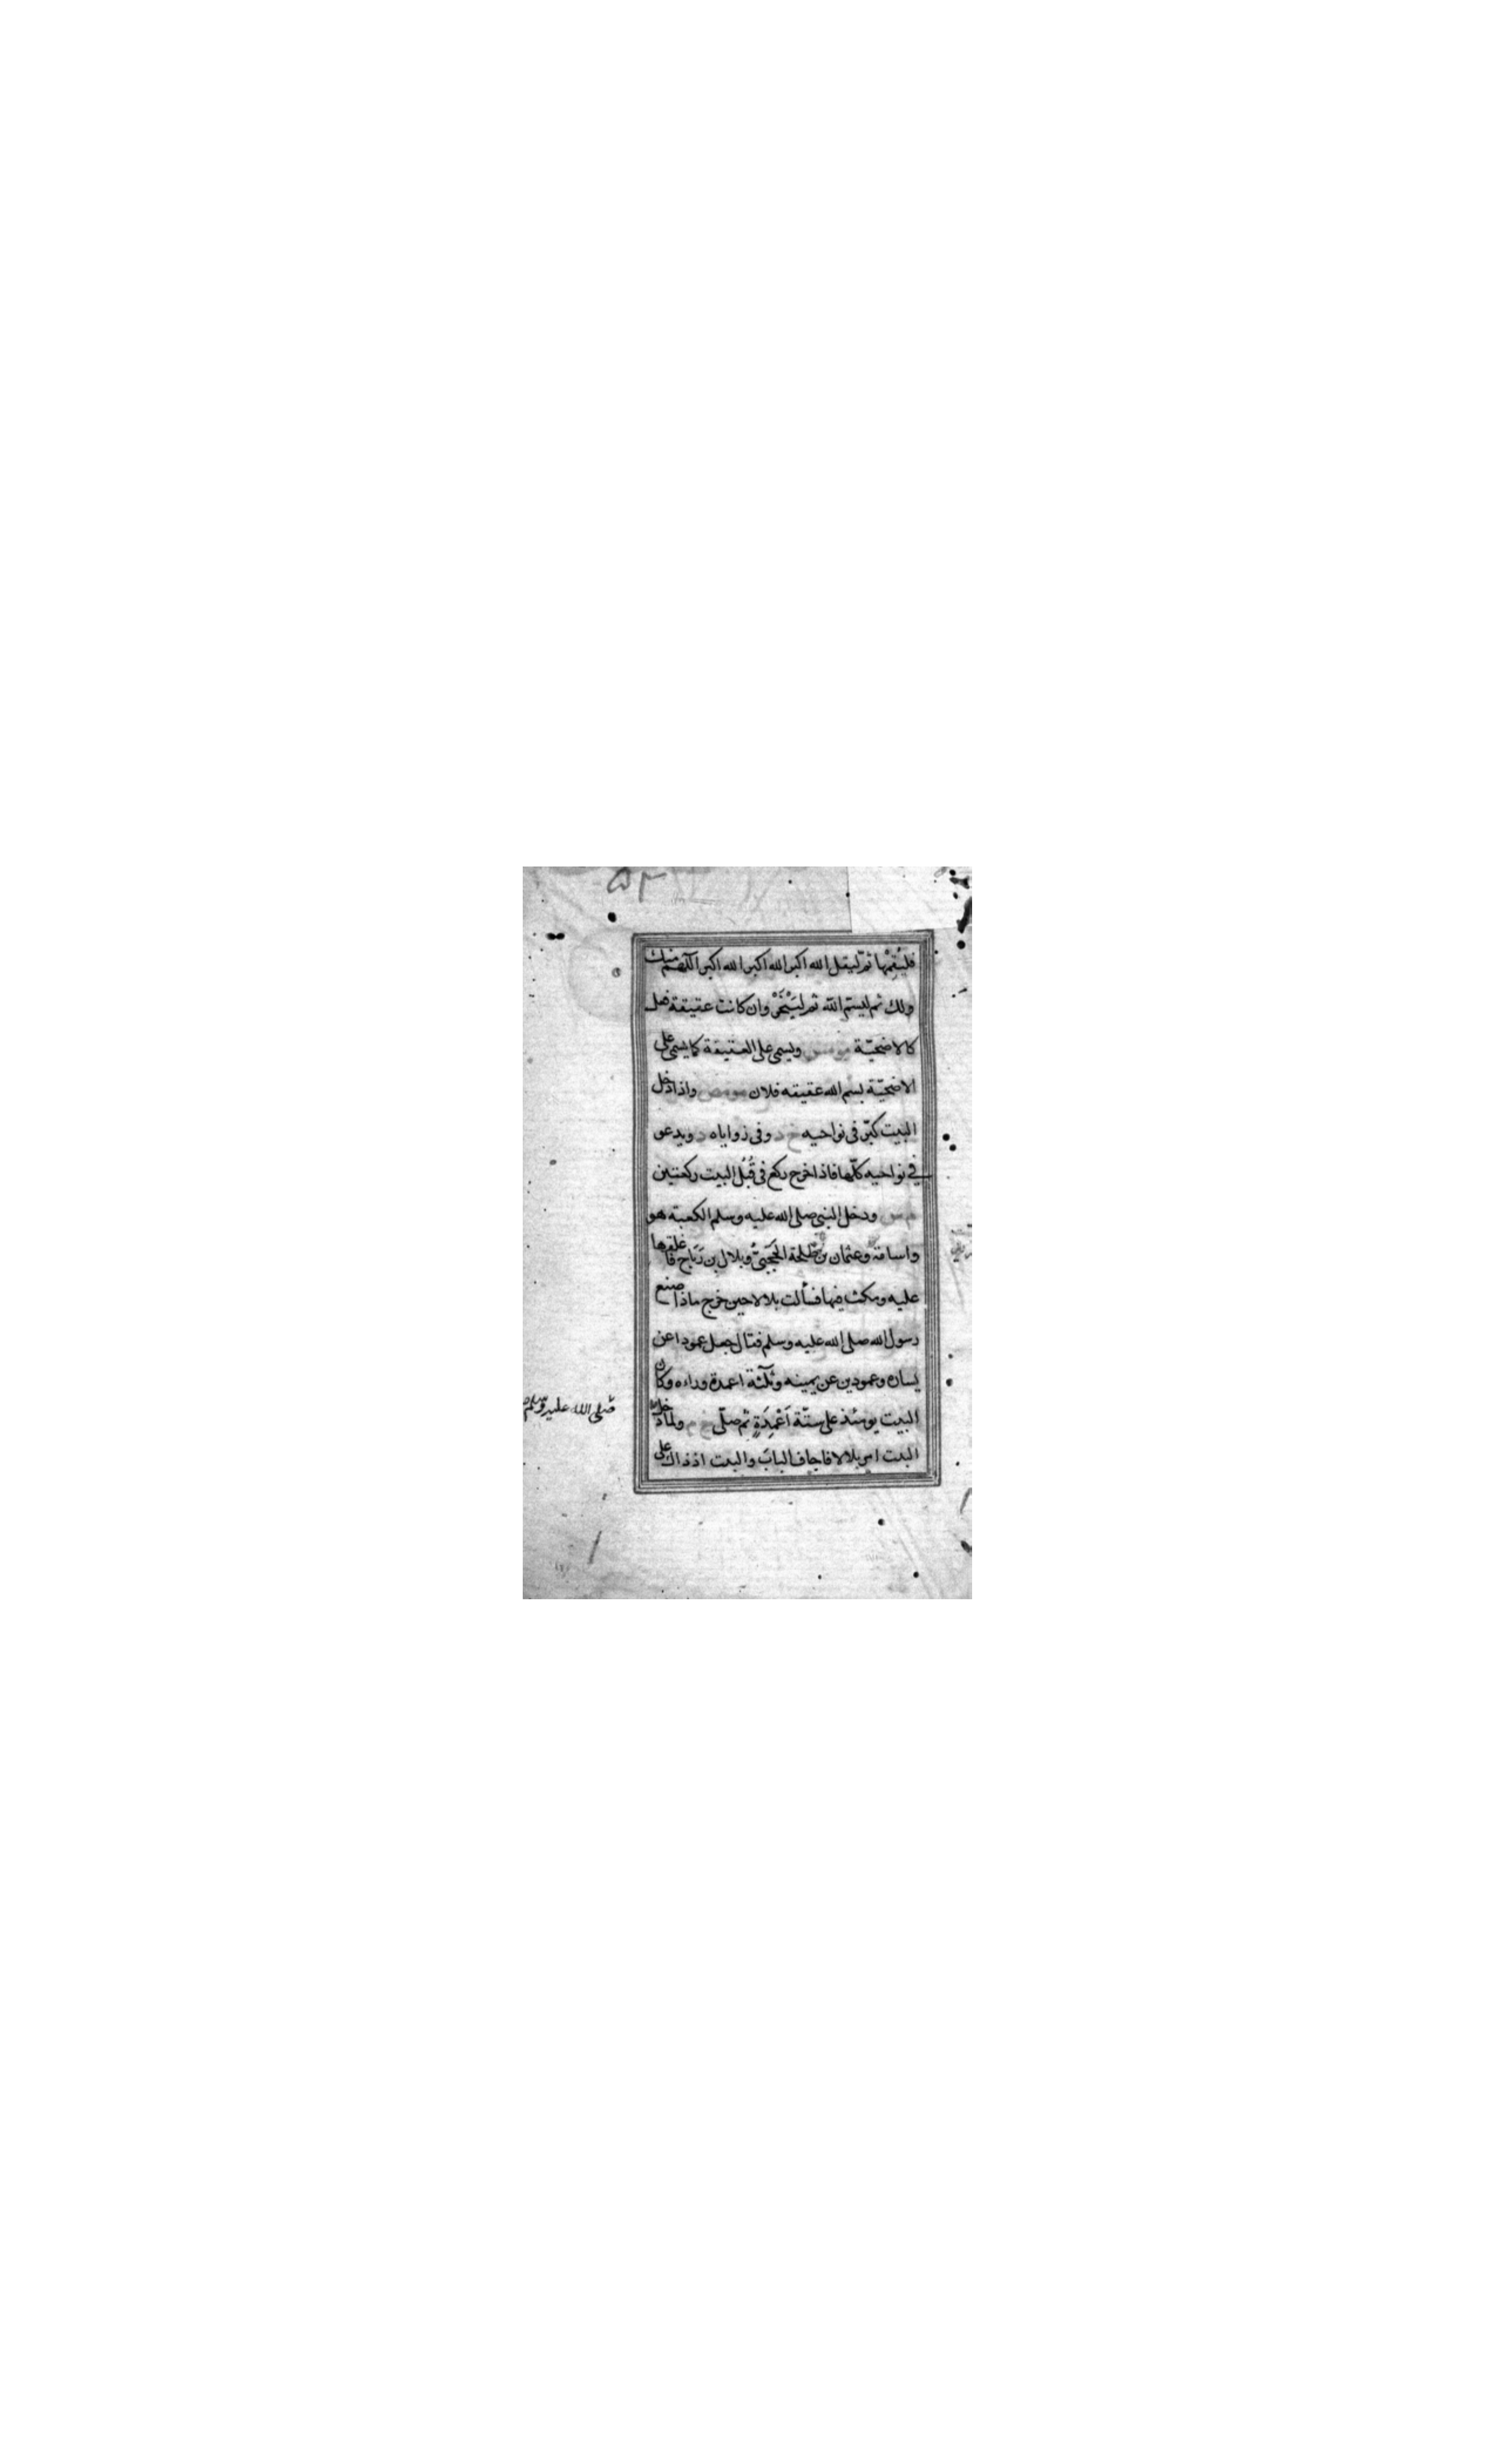 ٥٢
فليُقِمْها ثمّ ليقل الله اكبر الله اكبر الله اكبر اللّهم منك
ولك ثم ليسمّ الله ثم ليَنْحَرْ وان كانت عقيقة فعل
كالاضحيّة مومس ويسمى على العقيقة كما يسمى على
الاضحيّة بسم الله عقيقه فلان مومص واذا دخل
البيت كبّر فى نواحيه خ د وفى زواياه د ويدعو
في نواحيه كلّها فاذا خرج ركع فى قُبُل البيت ركعتين
م س ودخل النبى صلى الله عليه وسلم الكعبة هو
واسامة وعثمان بن طلحة الحَجَبىُّ وبلال بن رَبَاح فاغلقها
عليه ومكث فيها فسألت بلالا حين خرج ماذا صنع
رسول الله صلى الله عليه وسلم فقال جعل عمودا عن
يساره وعمودين عن يمينه وثلثة اعمدة وراءه وكان
البيت يومئذ على ستّة اَعْمِدَةٍ ثم صلّى خ م ولمّا دخل
صلى الله عليه وسلم
البيت امر بلالا فاجاف الباب والبيت اذ ذاك على